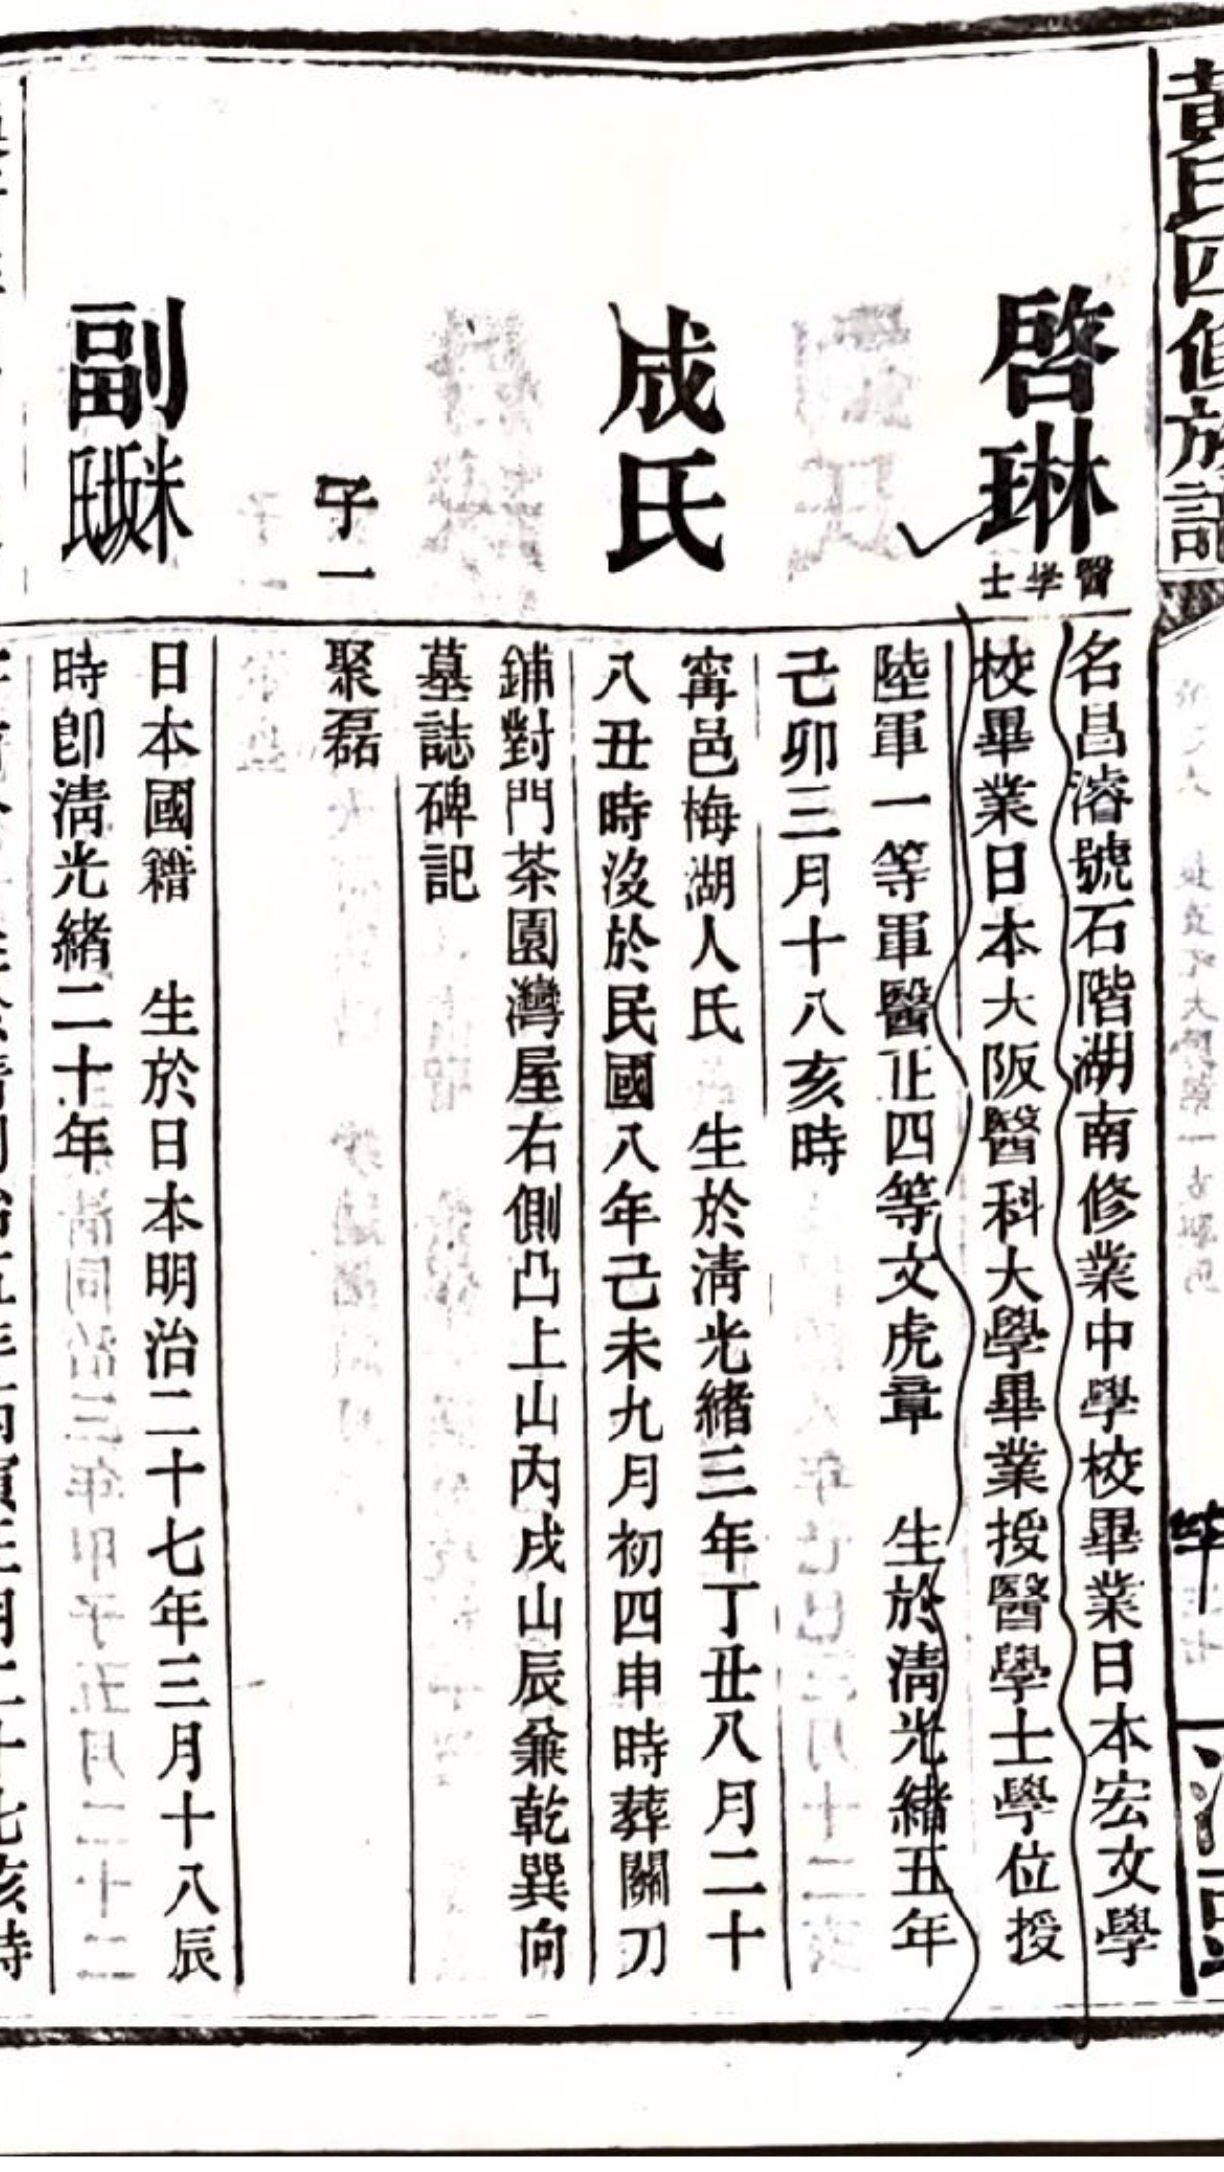 黃氏四修族譜
啓琳
醫學士
名昌濬號石階湖南修業中學校畢業日本宏文學
校畢業日本大阪醫科大學畢業授醫學士學位授
陸軍一等軍醫正四等文虎章　生於淸光緒五年
己卯三月十八亥時
成氏
甯邑梅湖人氏　生於淸光緒三年丁丑八月二十
八丑時沒於民國八年己未九月初四申時葬關刀
鋪對門茶園灣屋右側凸上山內戌山辰兼乾巽向
墓誌碑記
子一
聚磊
副
日本國籍　生於日本明治二十七年三月十八辰
時卽淸光緒二十年